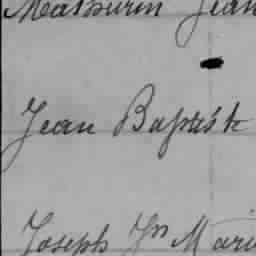 Mathurin Jean
Jean Baptiste
Joseph Jn Marie